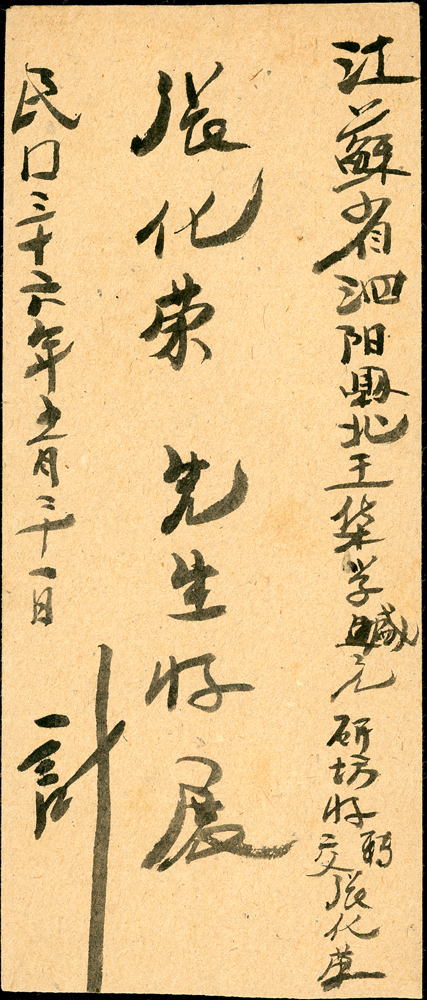 江蘇省泗阳縣北王集学
研坊 转交張化荣
張化荣 先生 展
民囗三十六年五月三十一日